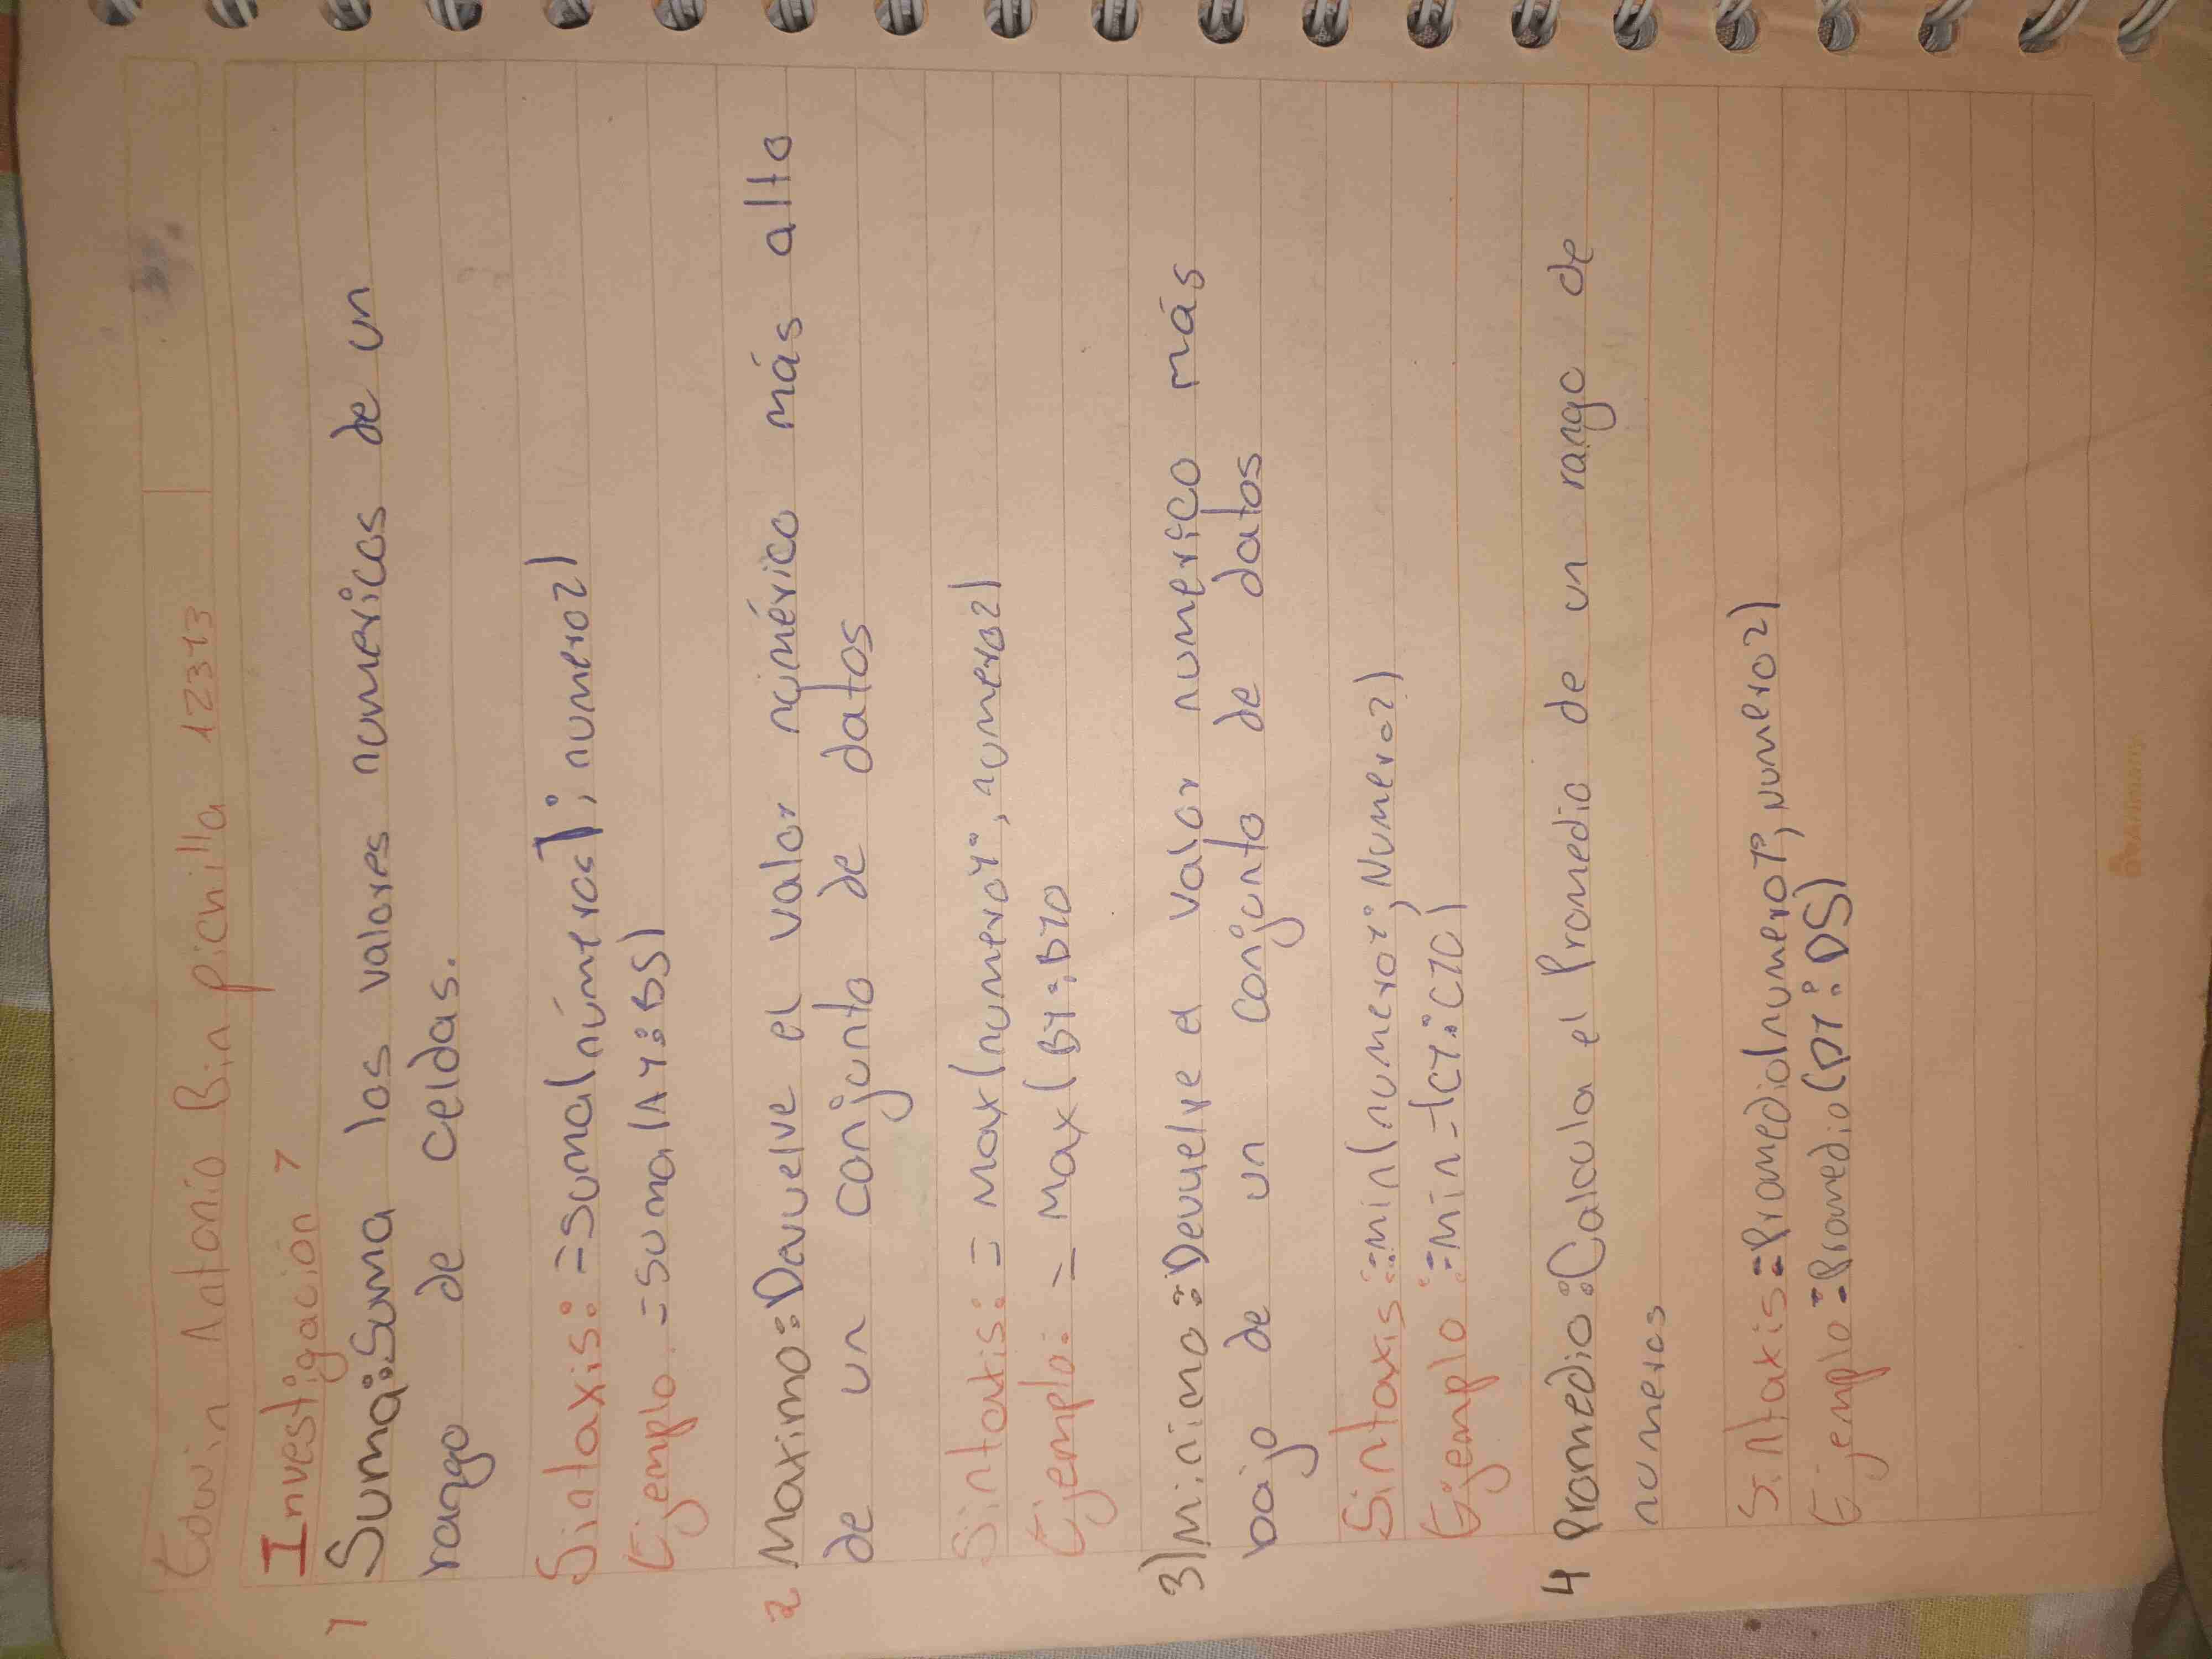 Edwin Antonio Bin pichilla 12313
Investigación 1
1 Suma: Suma los valores numericos de un
rango de celdas.
Sintaxis: =suma(números1; numero2)
Ejemplo =suma(A1:B5)
2 Maximo: Devuelve el valor númérico más alto
de un conjunto de datos
Sintaxis: = Max(numero1; numero2)
Ejemplo: = Max(B1:B10
3) Minimo: Devuelve el valor numerico más
bajo de un conjunto de datos
Sintaxis: =min(numero1; Numero2)
Ejemplo: =Min=(C1:C10)
4 Promedio: Calcula el Promedio de un rango de
numeros
Sintaxis: =Promedio(numero1; numero2)
Ejemplo: =Promedio(D1:D5)